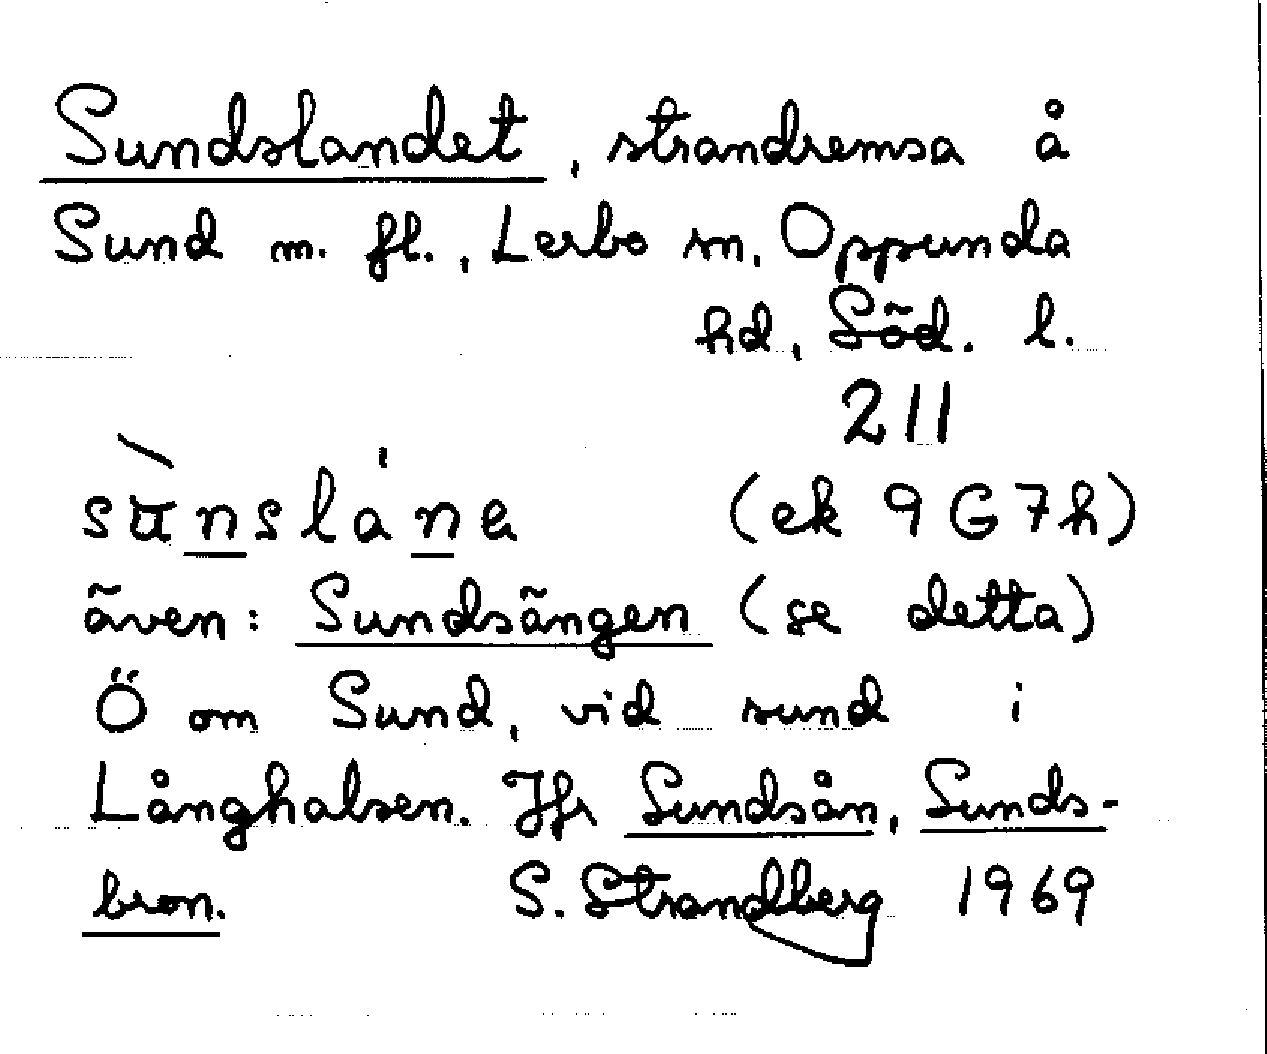 Sundslandet, strandremsa å
Sund m. fl., Lerbo sn, Oppunda
hd, Söd. l.
211
sùnslˈane (ek 9G7h)
även: Sundsängen (se detta)
Ö om Sund, vid sund i
Långhalsen. Jfr Sundsån, Sunds-
bron. S. Strandberg 1969